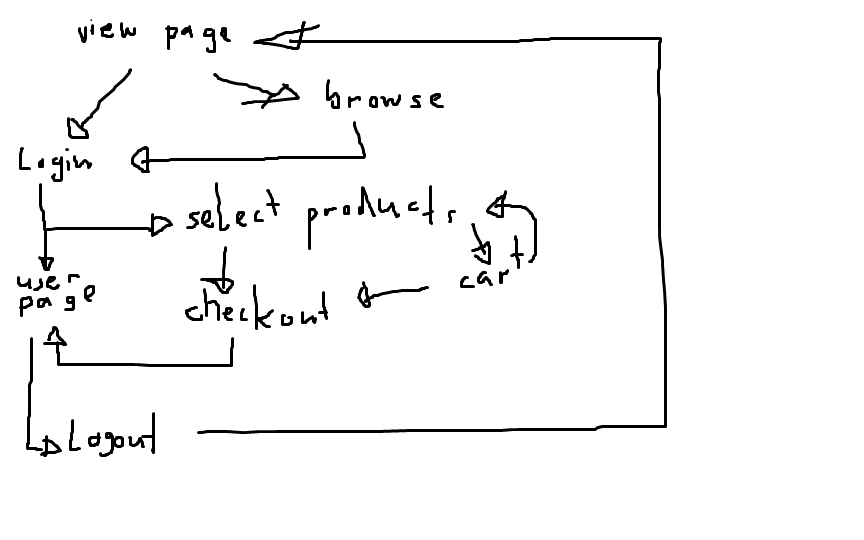 view page
browse
Login
select products
cart
user
page
checkout
Logout